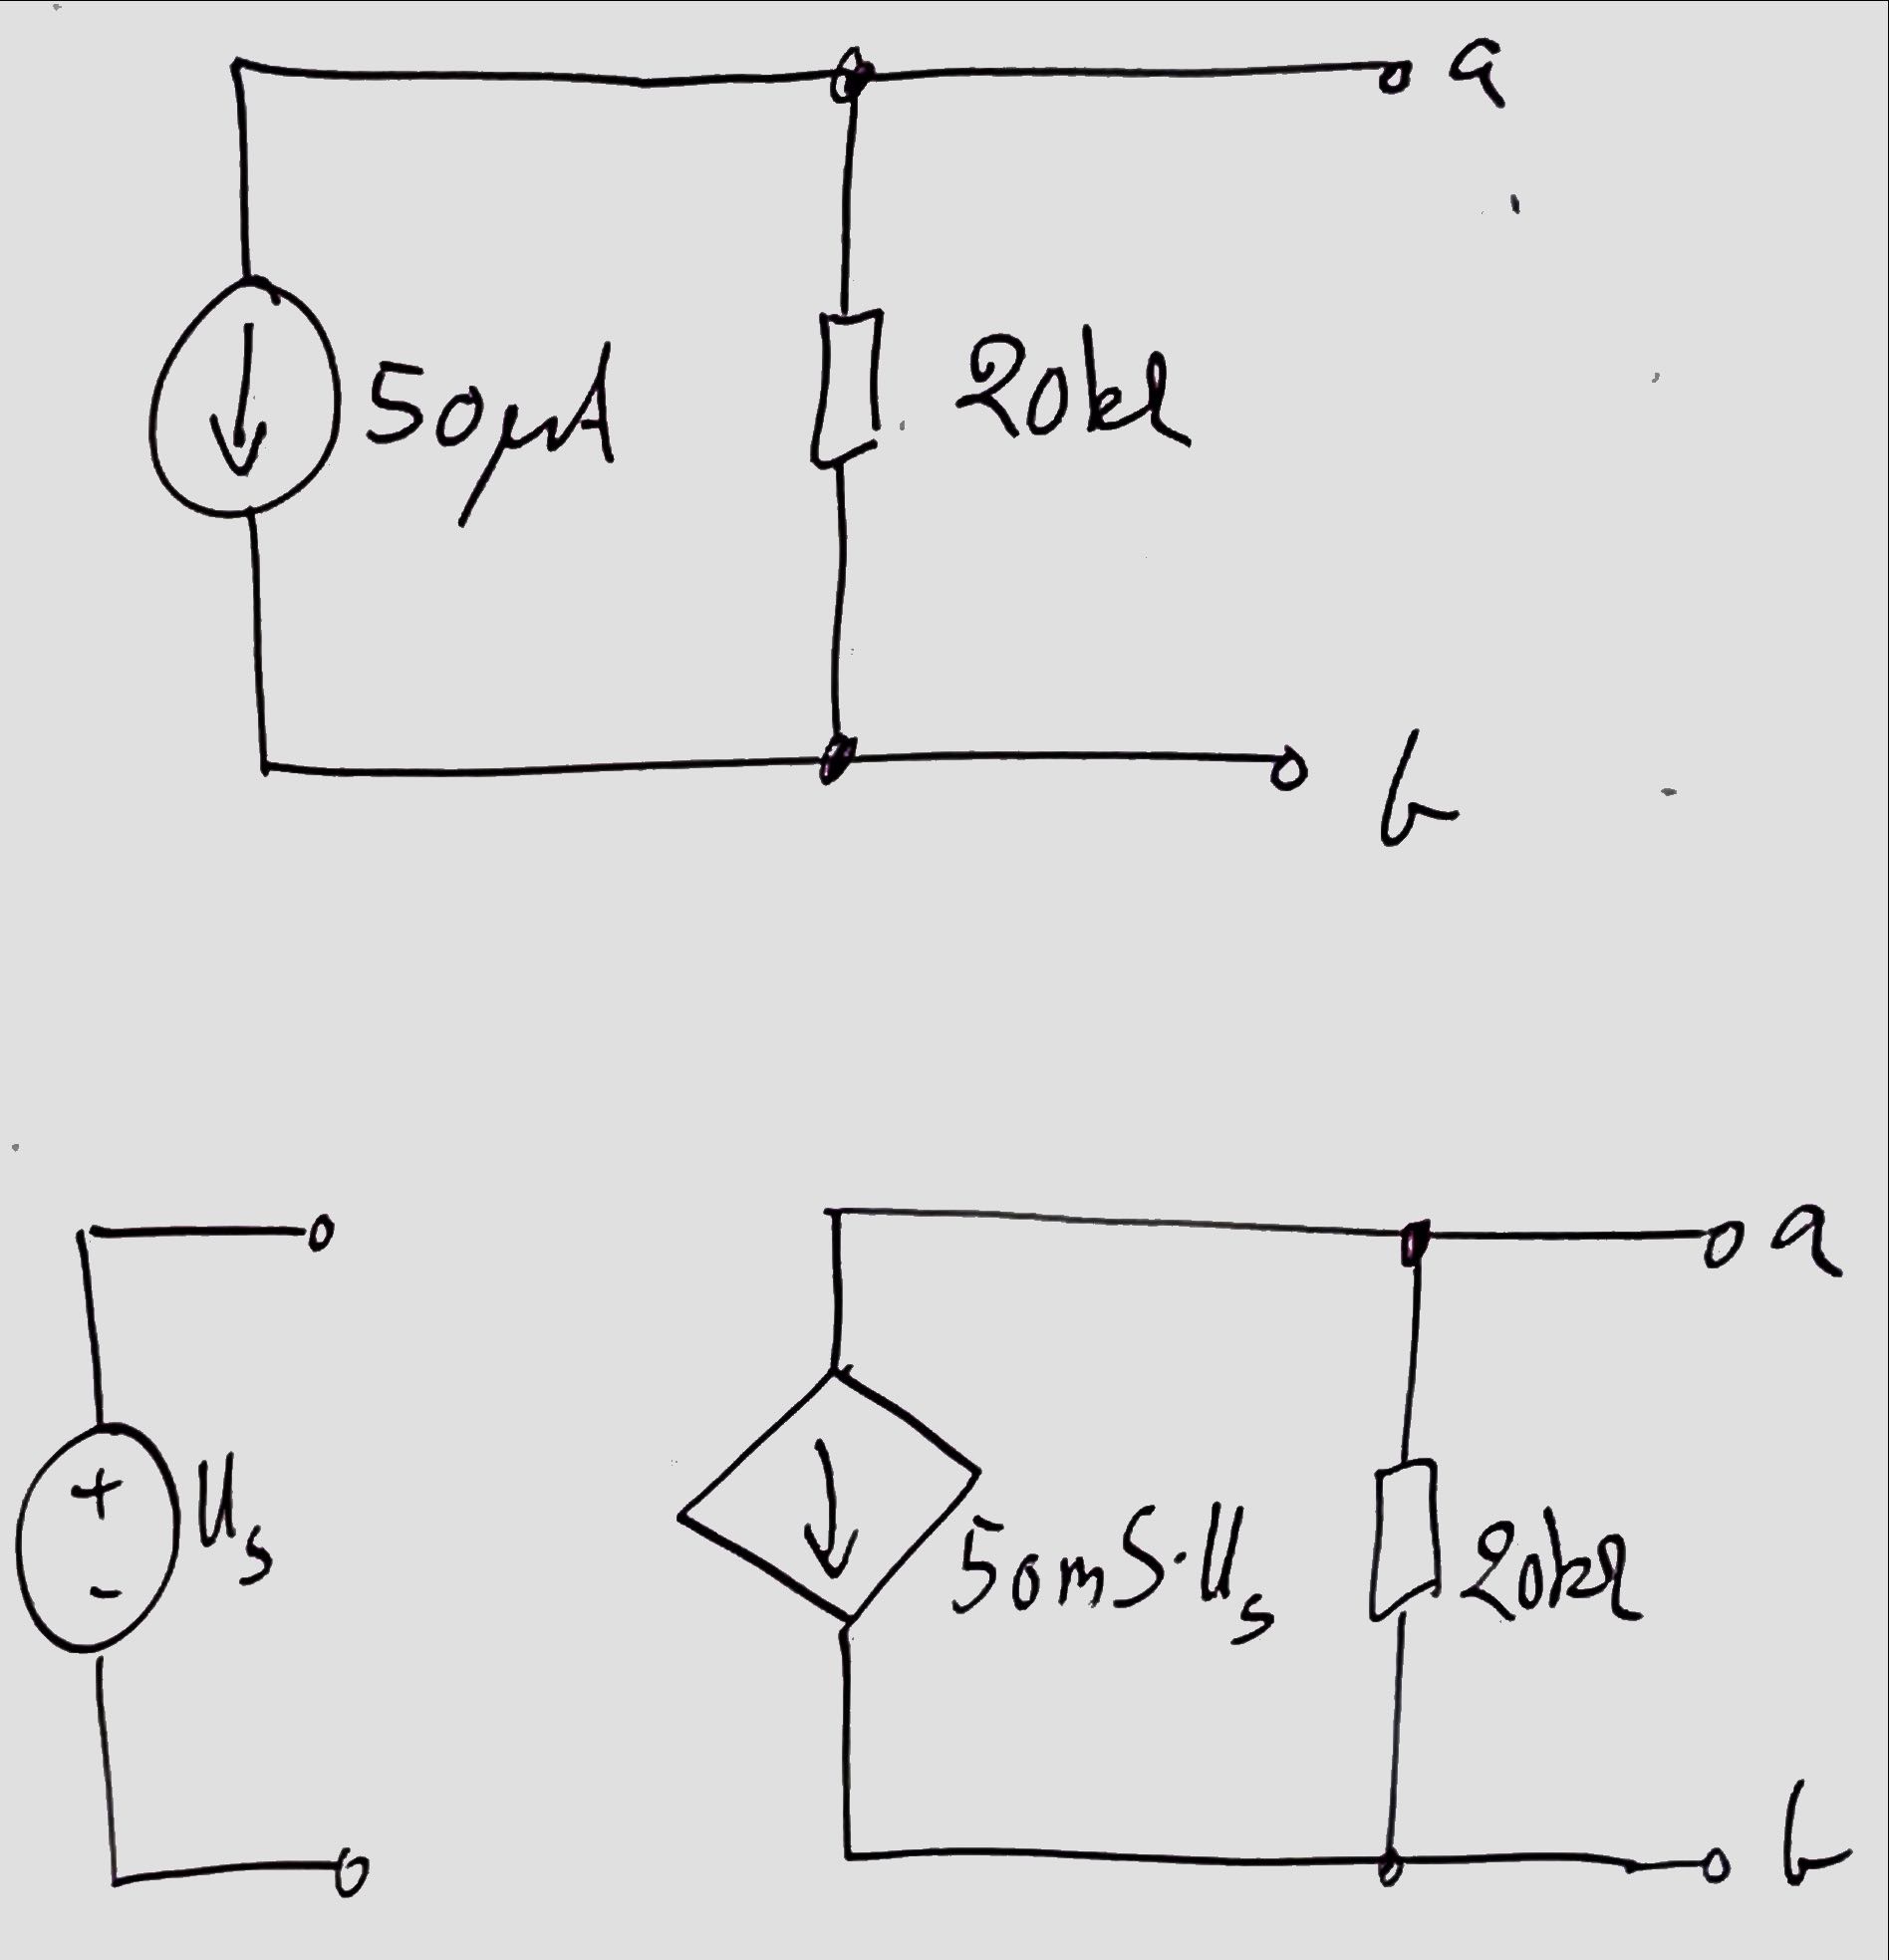 a
50µA
20kΩ
b
a
+
Us
-
50mS·Us
20kΩ
b